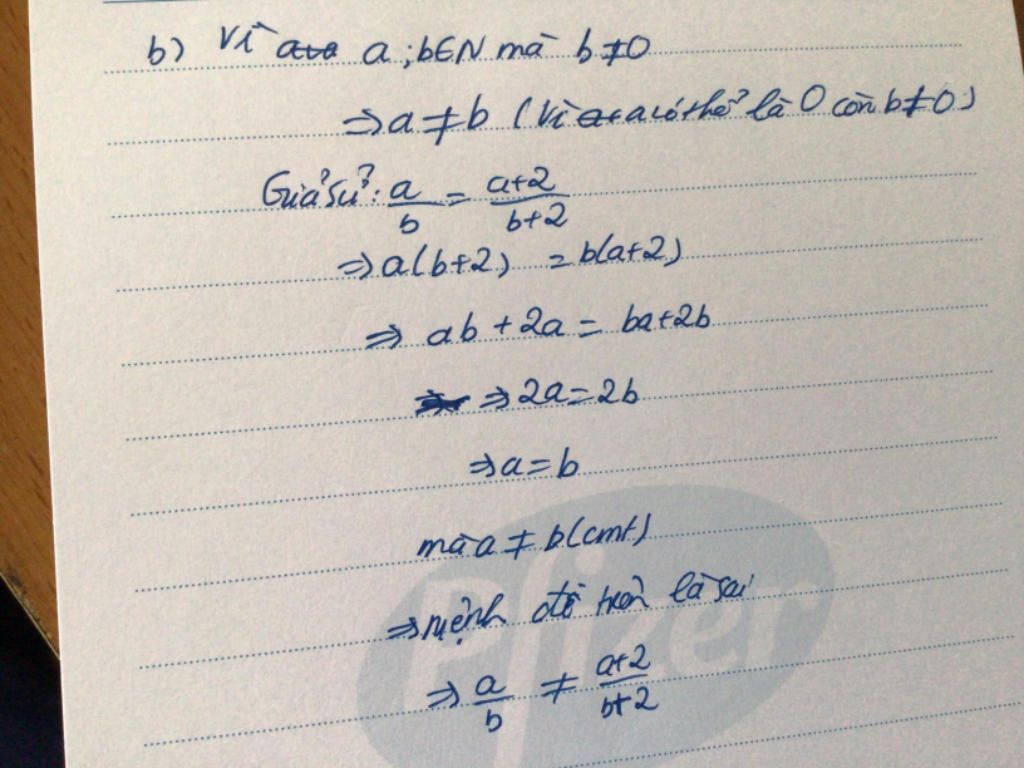 b) Vì a;b∈N mà b≠0
⇒ a ≠ b (Vì a có thể là 0 còn b≠0)
Giả sử: a/b = a+2/b+2
⇒ a(b+2) = b(a+2)
⇒ ab + 2a = ba + 2b
⇒ 2a = 2b
⇒ a = b
mà a ≠ b (cmt)
⇒ mệnh đề trên là sai
⇒ a/b ≠ a+2/b+2
Pfizer